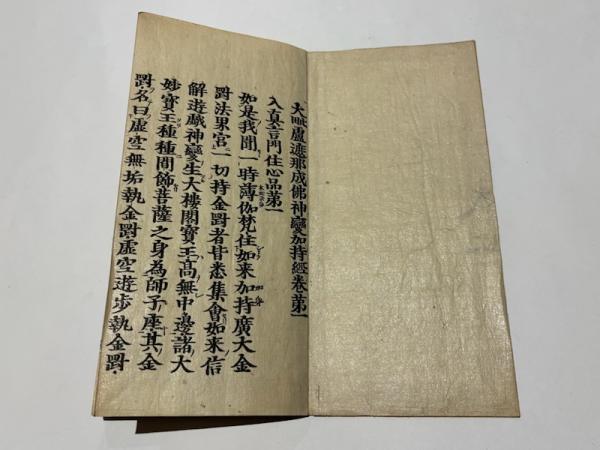 大毗盧遮那成佛神變加持經卷第一
入真言門住心品第一
如是我聞一時薄伽梵住如来加持廣大金
剛法界宮一切持金剛者皆悉集會如来信
解遊戯神變生大樓閣寶王髙無中邊諸大
妙寶王種種間飾菩薩之身為師子座其金
剛名曰虚空無垢執金剛虚空遊步執金剛